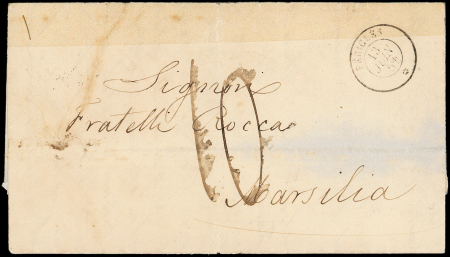 Signori
Fratelli Rocca
10
Marsilia
15
JUIN